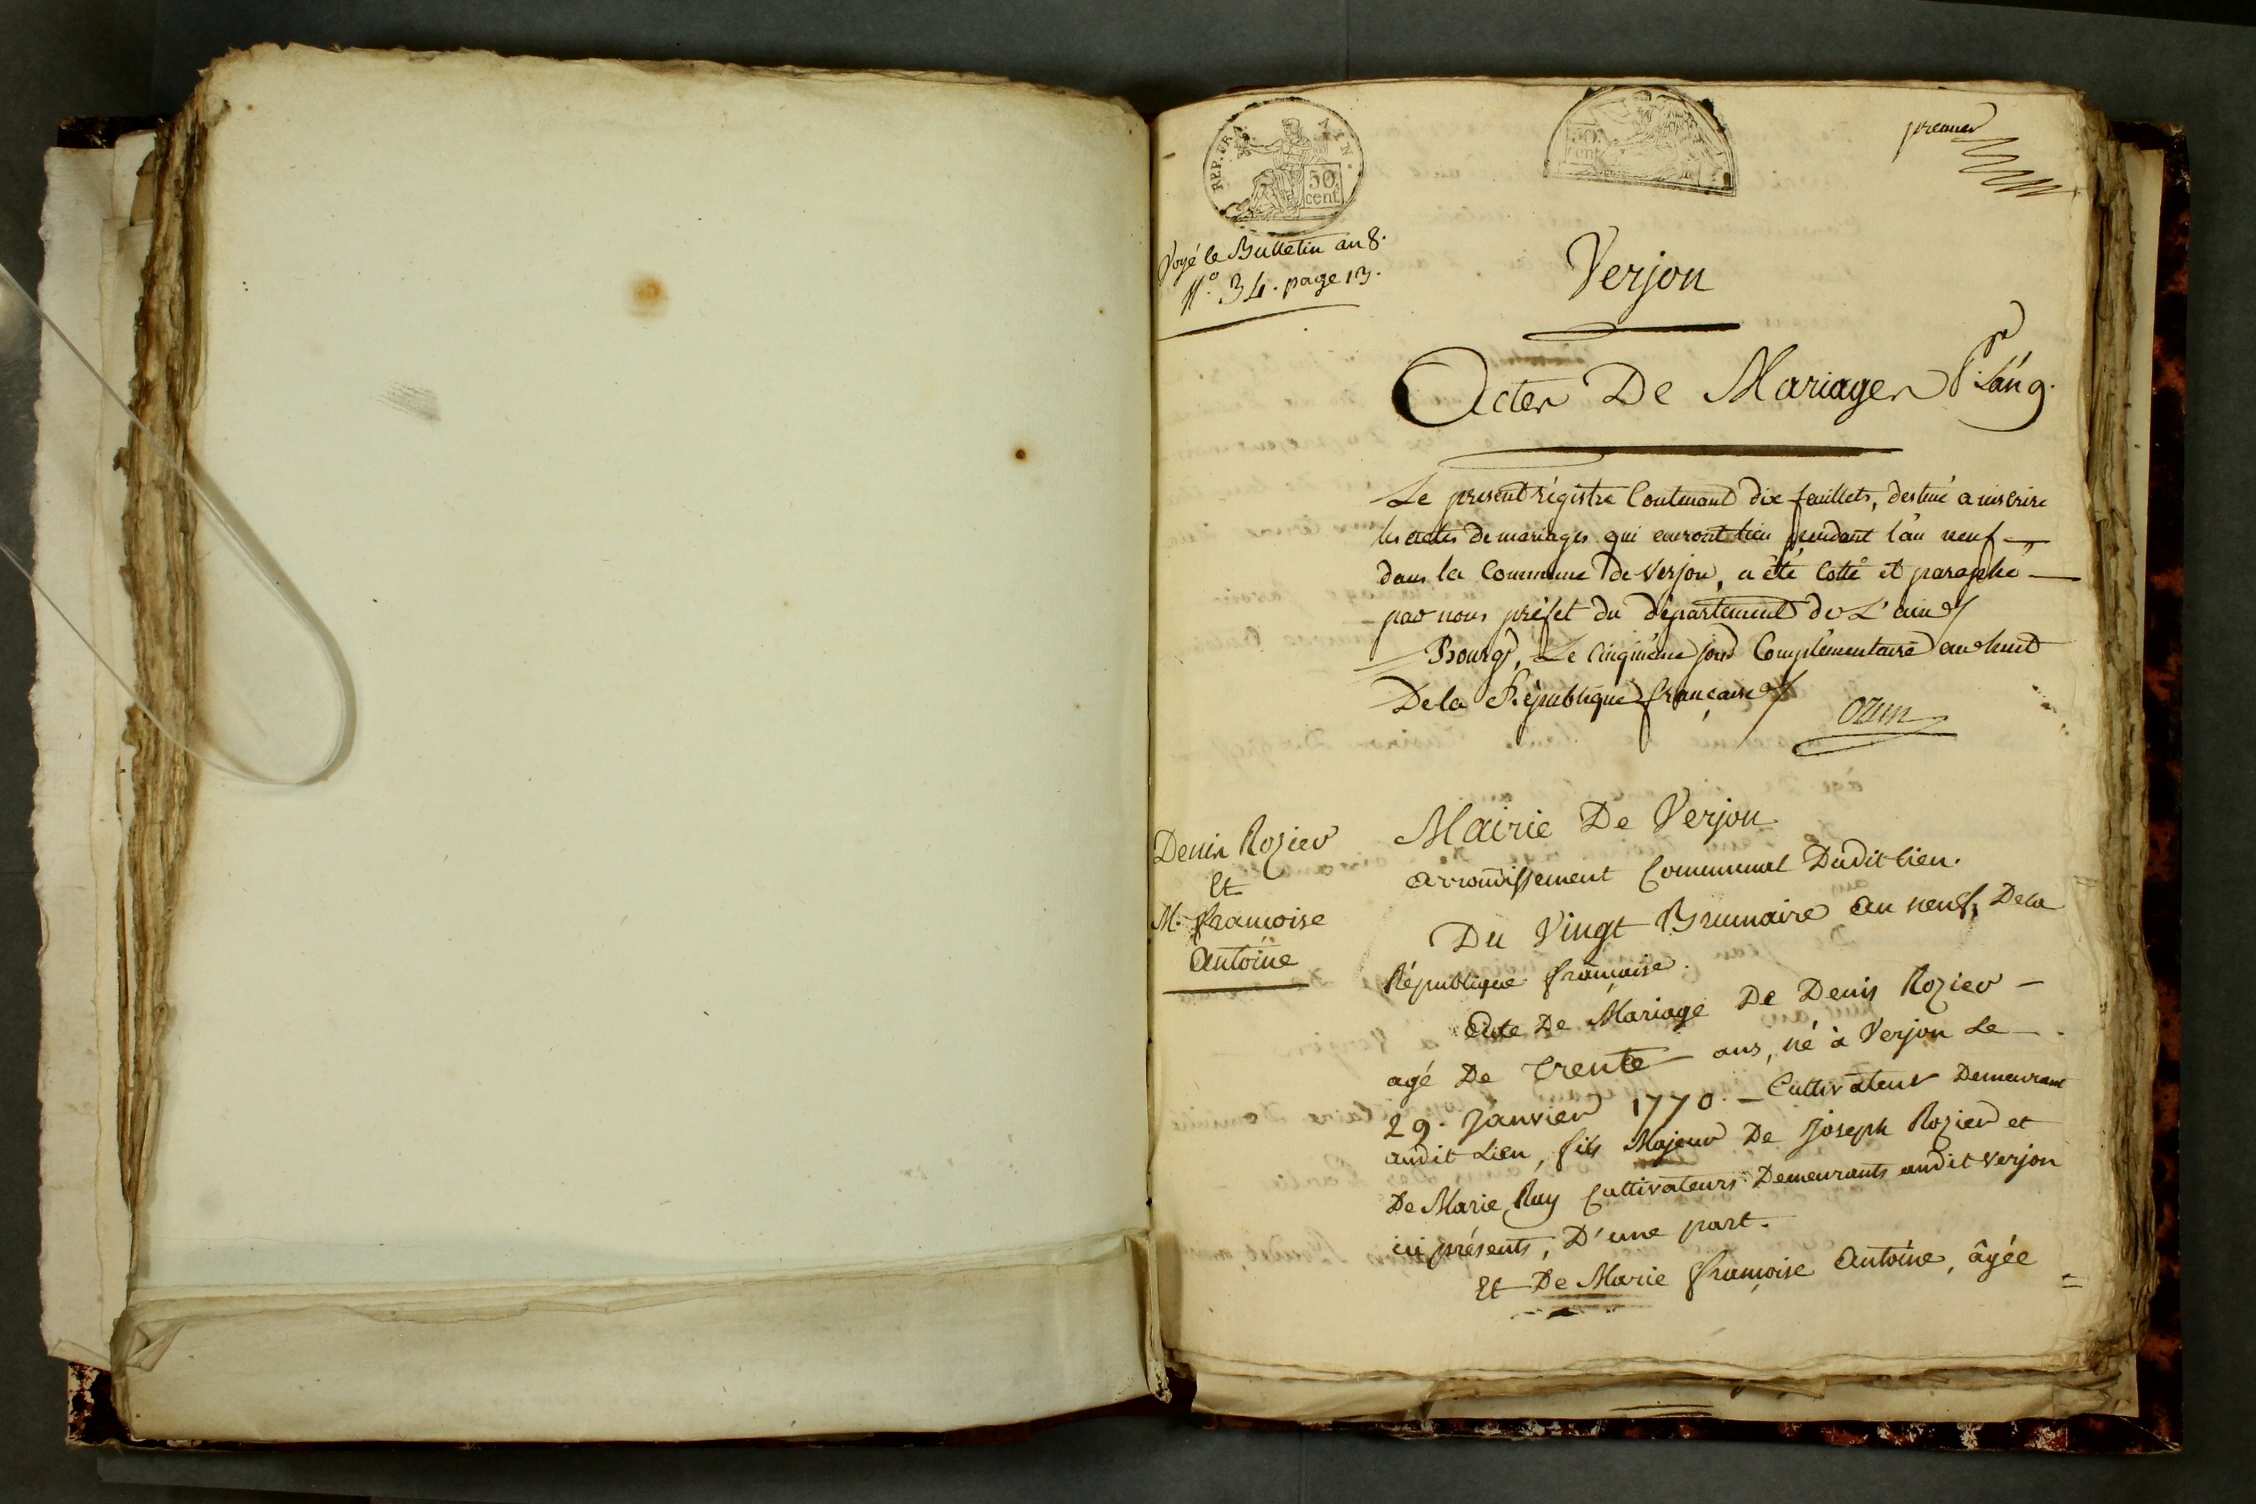 REP. FRA. AIN.
50
cent
50
cent
premier
Voyé le Bulletin an 8.
N.º 34. page 13.
Verjon
Actes De Mariages p.r L'an 9.
Le present régistre Contenant dix feuillets, destiné a inscrire
les actes de mariages qui auront lieu pendant l'an neuf
dans la Commune de Verjon, a été Cotté et paraphé
par nous préfet du département de L'ain
Bourg, Le Cinquième jour Complémentaire an huit
De la République française
Ozun
Denis Rozier
Et
M. françoise
Antoine
Mairie De Verjon
arrondissement Communal Dudit lieu.
Du Vingt Brumaire an neuf, De la
République française.
Acte De Mariage De Denis Rozier
agé De trente ans, né à Verjon Le
29. Janvier 1770. Cultivateur Demeurant
audit Lieu, fils Majeur De Joseph Rozier et
De Marie Ray Cultivateurs Demeurants audit Verjon
ici présents, D'une part.
Et De Marie françoise Antoine, âgée